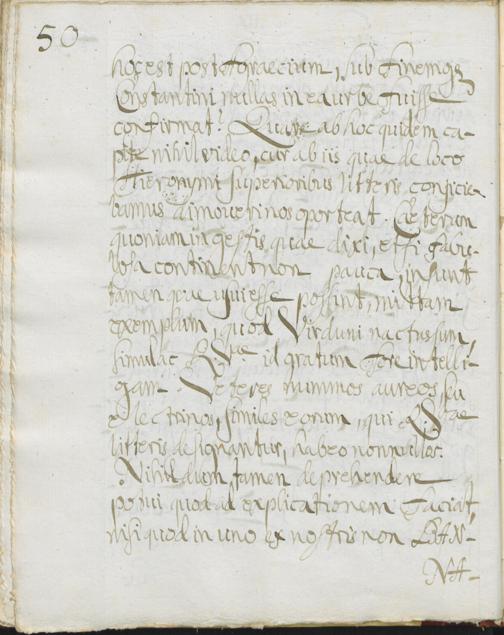 50
hoc est post Graecium, sub finemq3
Constantini nullas in ea urbe fuisse
confirmat? Quare ab hoc quidem ca-
pite nihil video, cur ab iis quae de loco
Hieronymi superioribus litteris conficie-
bamus dimoveri nos oporteat. Caeterum
quoniam in gestis, quae dixi, etsi fabu-
losa continent non pauca, insunt
tamen quae usui esse possint, mittam
exemplum, quod Virduni nactus sum,
simulac id gratum fore intelli-
gam. Veteres nummos aureos seu
electrinos, similes eorum, qui
litteris designantur, habeo nonnullos.
Nihil dum tamen deprehendere
potui quod ad explicationem faciat,
nisi quod in uno ex nostris non BAN-
NA-